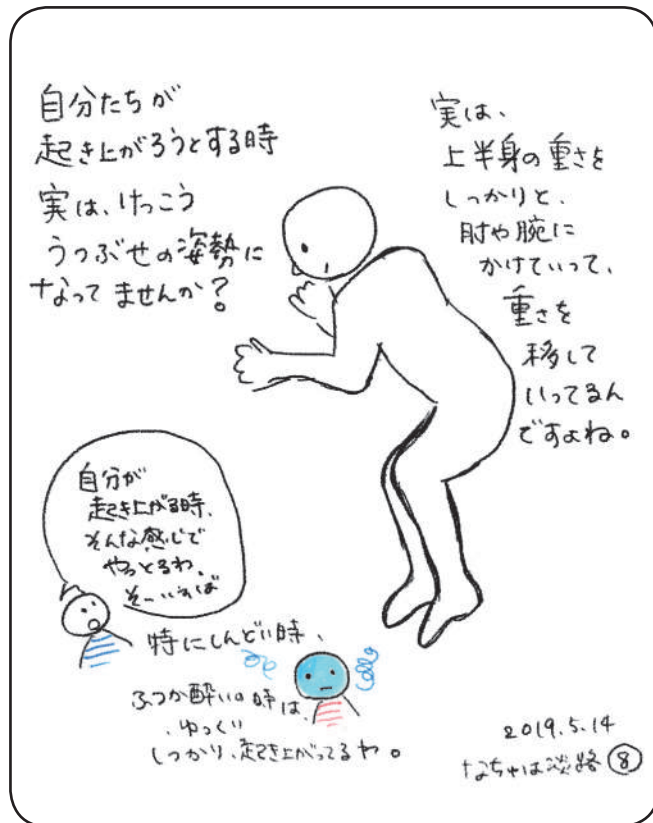 自分たちが
起き上がろうとする時
実は、けっこう
うつぶせの姿勢に
なってませんか?
実は、
上半身の重さを
しっかりと、
肘や腕に
かけていって、
重さを
移して
いってるん
ですよね。
自分が
起き上がる時、
そんな感じで
やっとるわ、
そーいえば
特にしんどい時、
ふつか酔いの時は、
、ゆっくり
しっかり、起き上がってるわ。
2019.5.14
なちゅは淡路 ⑧